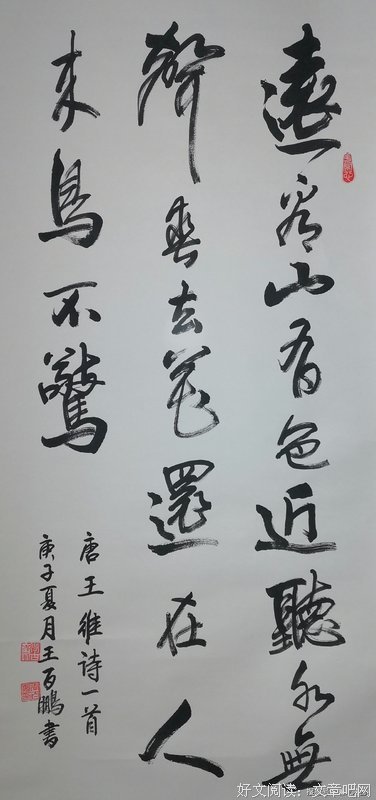 遠看山有色近聽水無
聲春去花還在人
來鳥不驚
唐王維詩一首
庚子夏月王百鵬書
好文阅读：文章吧网